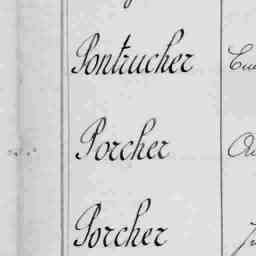 Pontrucher
Porcher
Porcher